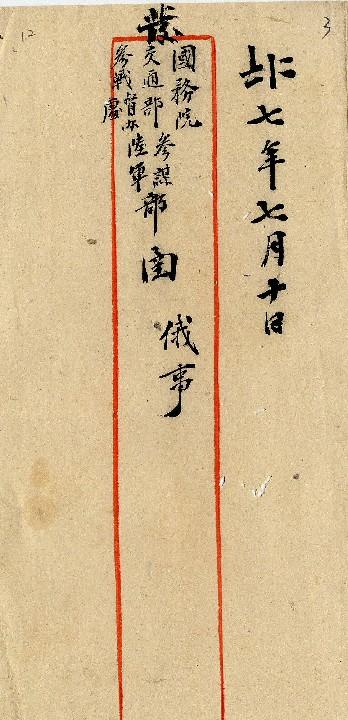 3
12
七年七月十日
發
國務院
交通部
參戰督办處
參謀
陸軍
部函
俄事